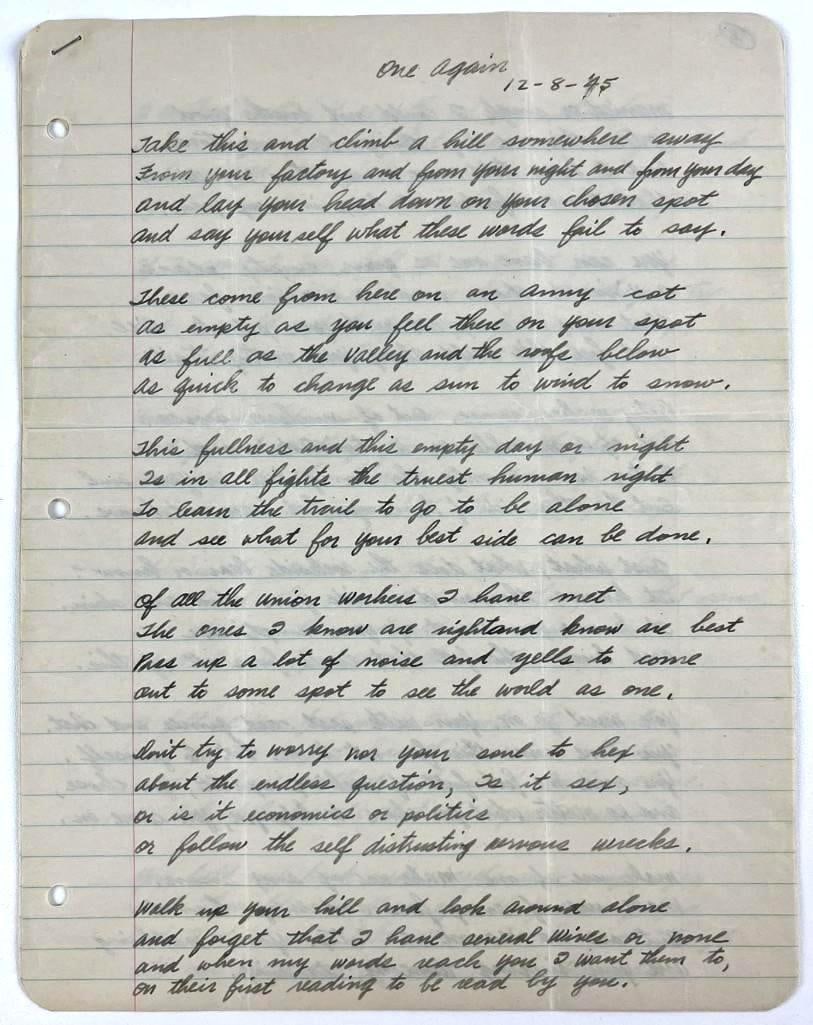 One Again
12-8-45
Take this and climb a hill somewhere away
From your factory and from your night and from your day
and lay your head down on your chosen spot
and say yourself what these words fail to say.
These come from here on an army cot
as empty as you feel there on your spot
as full as the valley and the roofs below
as quick to change as sun to wind to snow.
This fullness and this empty day or night
Is in all fights the truest human right
To learn the trail to go to be alone
and see what for your best side can be done.
Of all the union workers I have met
The ones I know are right and know are best
Pass up a lot of noise and yells to come
out to some spot to see the world as one.
Don't try to worry nor your soul to hex
about the endless question, Is it sex,
or is it economics or politics
or follow the self distrusting nervous wrecks.
Walk up your hill and look around alone
and forget that I have several wives or none
and when my words reach you I want them to,
on their first reading to be read by you.